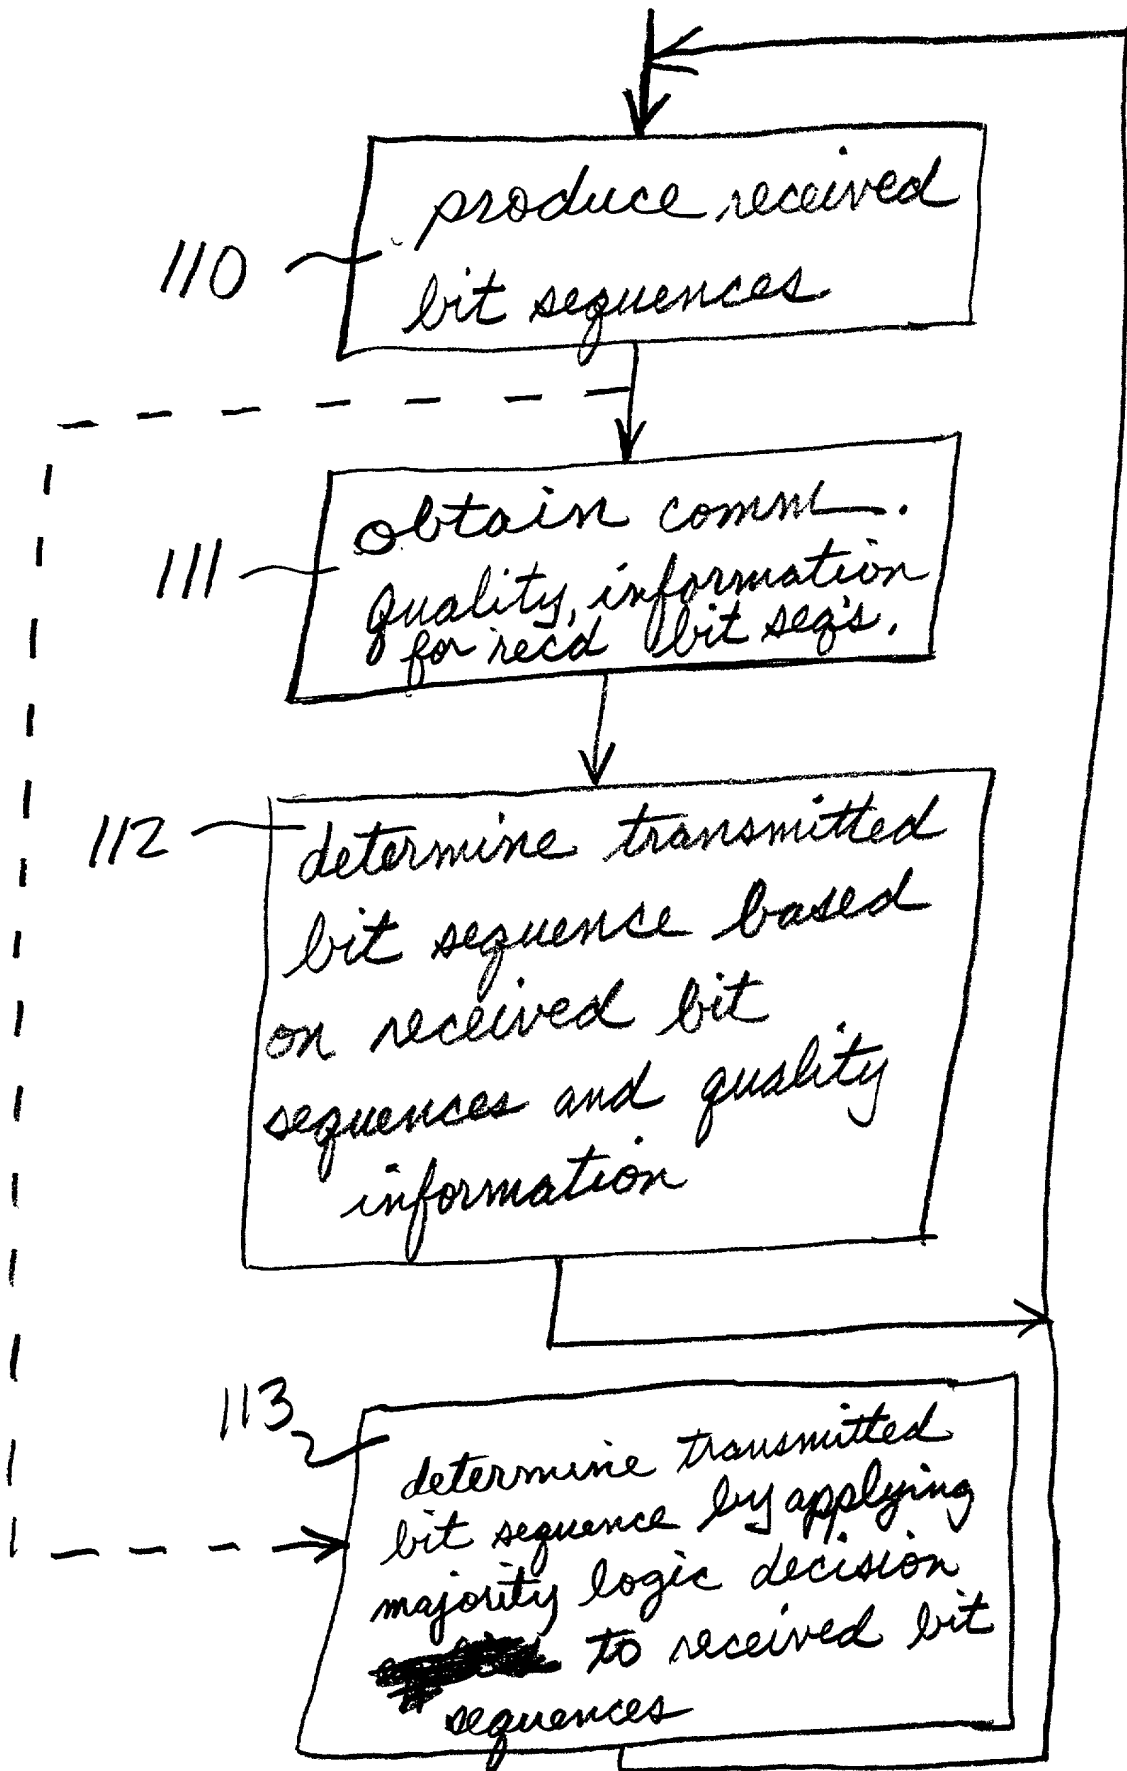 110
produce received
bit sequences.
111
obtain comm.
quality, information
for recd bit seq's.
112
determine transmitted
bit sequence based
on received bit
sequences and quality
information
113
determine transmitted
bit sequence by applying
majority logic decision
to received bit
sequences